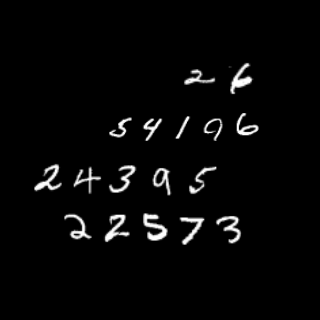 26
54196
24395
22573